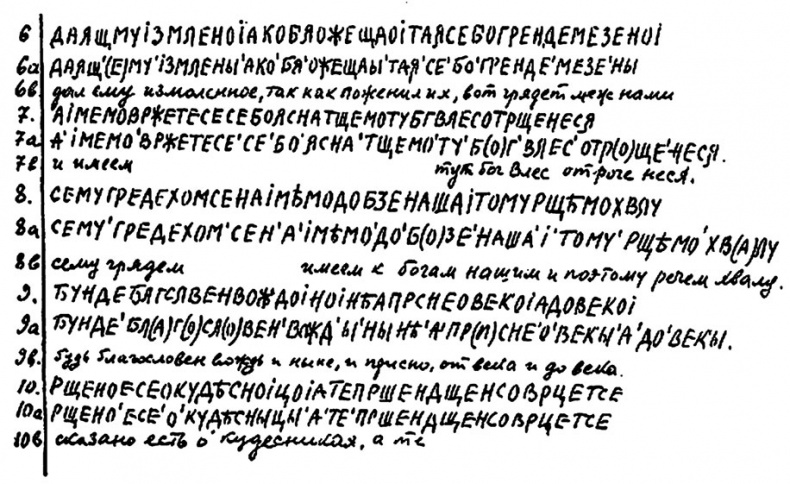 6 ДАЯЩМУІЗМЛЕНОЇАКОБЯОЖЕЩАОІТАЯСЕБОГРЕНДЕМЕЗЕНОІ
6а ДАЯЩ'(Е)МУ'ІЗМЛЕНЫ'АКО'БЯ'ОЖЕЩАЫ'ТАЯ'СЕ'БО'ГРЕНДЕ'МЕЗЕ'НЫ
6в дал ему измоленное, так как поженил их, вот грядет меж нами
7. 'АІМЕМОВРЖЕТЕСЕСЕБОЯСНАТЩЕМОТУБГВЛЕСОТРЩЕНЕСЯ
7а А'ІМЕМО'ВРЖЕТЕСЕ'СЕ'БО'ЯСНА'ТЩЕМО'ТУ'Б(О)Г'ВЛЕС'ОТР(О)ЩЕ'НЕСЯ.
7в и имеем тут бог Влес отроче неся.
8. СЕМУГРЕДЕХОМСЕНАІМѢМОДОБЗЕНАШАІТОМУРЩѢМОХВЛУ
8а СЕМУ'ГРЕДЕХОМ'СЕН'А'ІМѢМО'ДО'Б(О)ЗЕ'НАША'І'ТОМУ'РЩѢМО'ХВ(А)ЛУ
8в сему грядем имеем к богам нашим и поэтому речем хвалу.
9. БУНДЕБЛГСЛВЕНВОЖДОІНОІНѢАПРСНЕОВЕКОІАДОВЕКОІ
9а БУНДЕ'БЛ(А)Г(О)СЛ(О)ВЕН'ВОЖД'Ы'НЫНѢ'А'ПР(И)СНЕ'О'ВЕКЫ'А'ДО'ВЕКЫ.
9в. будь благословен вождь и ныне, и присно, от века и до века.
10. РЩЕНОЕСЕОКУДѢСНОІЦОІАТЕПРШЕНДЩЕНСОВРЦЕТСЕ
10а РЩЕНО'ЕСЕ'О'КУДѢСНЫЦЫ'А'ТЕ'ПРШЕНДЩЕНСОВРЦЕТСЕ
10в сказано есть о кудесниках, а те